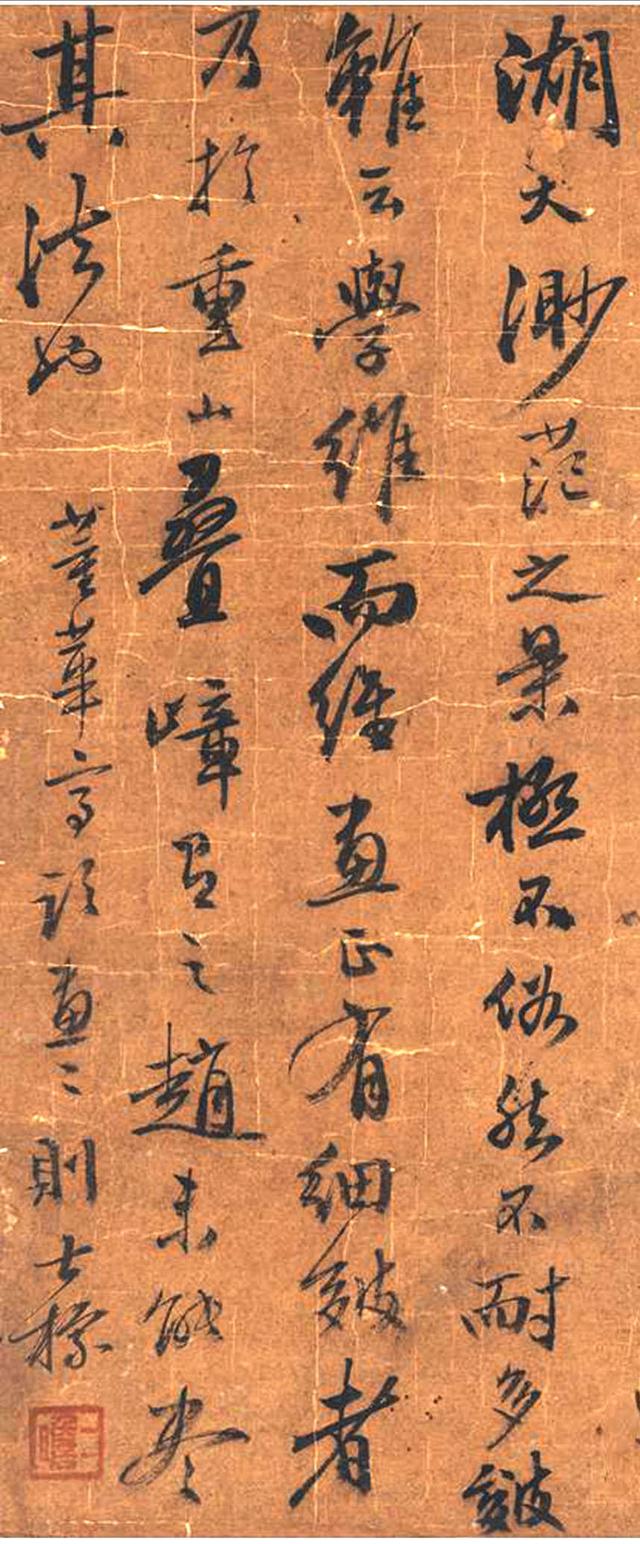 湖天渺茫之景極不俗然不耐多皴
雖云學維而維畫正有細皴者
乃於重山疊嶂有之趙未能盡
其法也 董華亭題畫二則 士標
二瞻